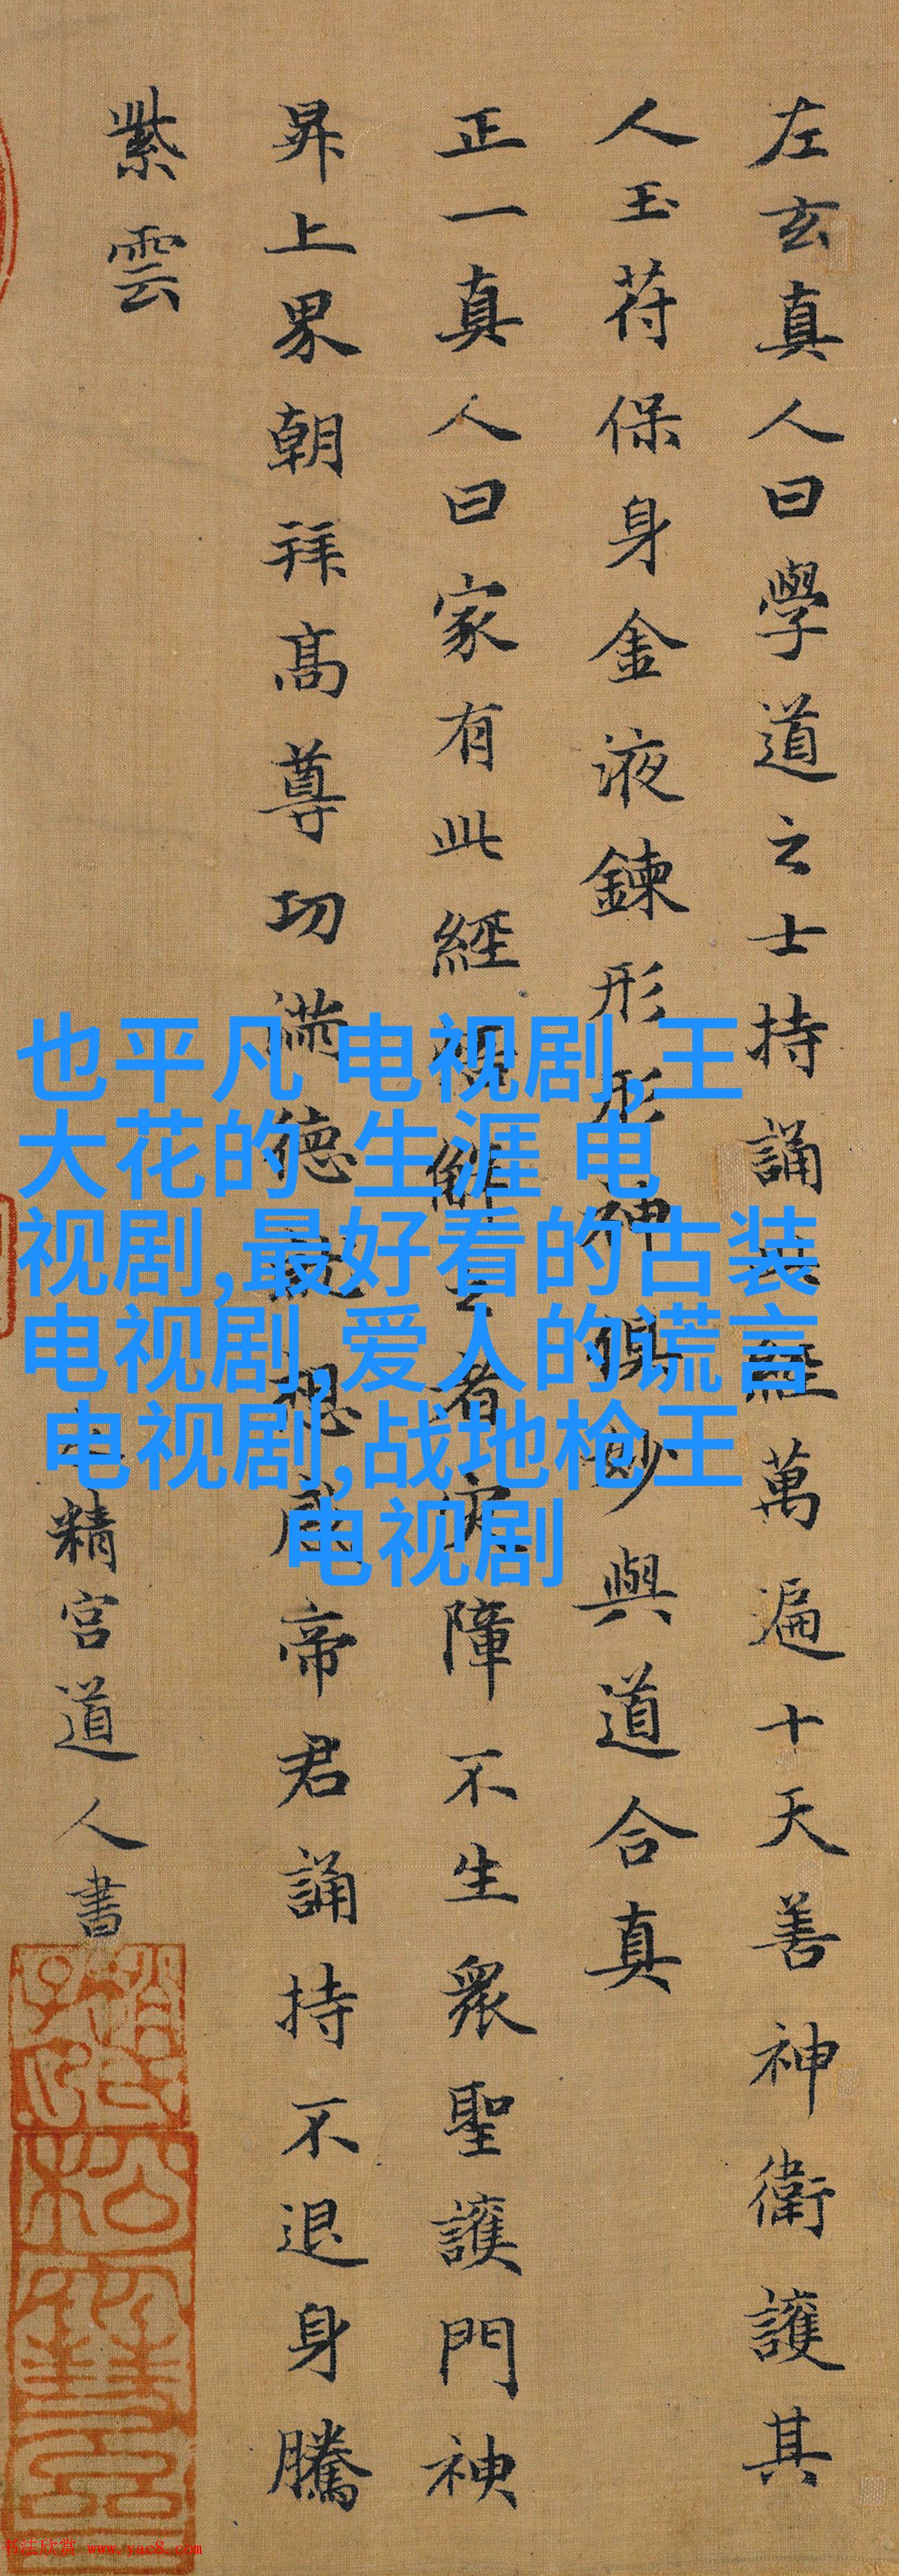 左玄真人曰學道之士持誦此經萬遍十天善神衛護其
人玉苻保身金液鍊形形神俱妙與道合真
正一真人曰家有此經悟解之者灾障不生衆聖護門神
昇上界朝拜髙尊功滿德就想感帝君誦持不退身騰
紫雲
精宫道人書
趙氏子昂
也平凡 电视剧,王
大花的 生涯 电
视剧,最好看的古装
电视剧,爱人的谎言
电视剧,战地枪王
电视剧
书法欣赏 www.yac8.com